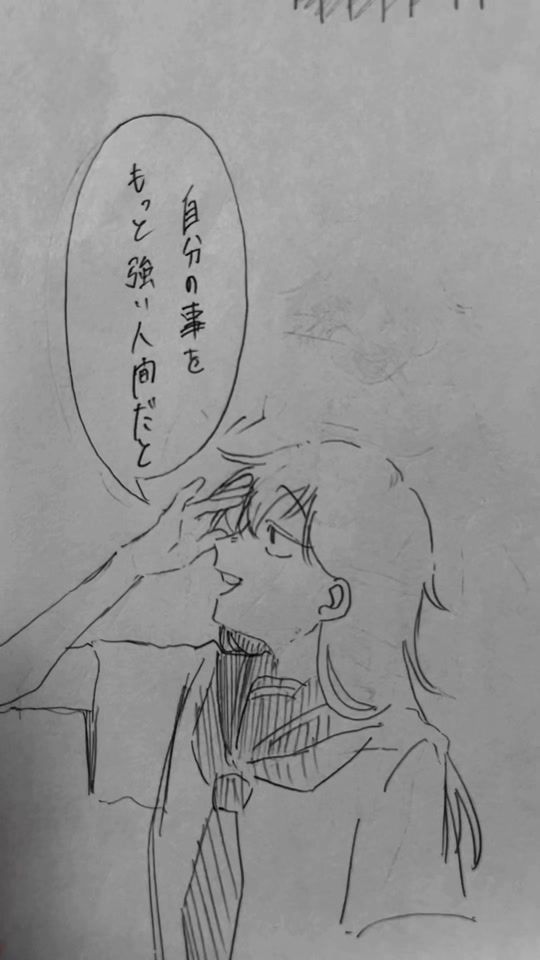 自分の事を
もっと強い人間だと